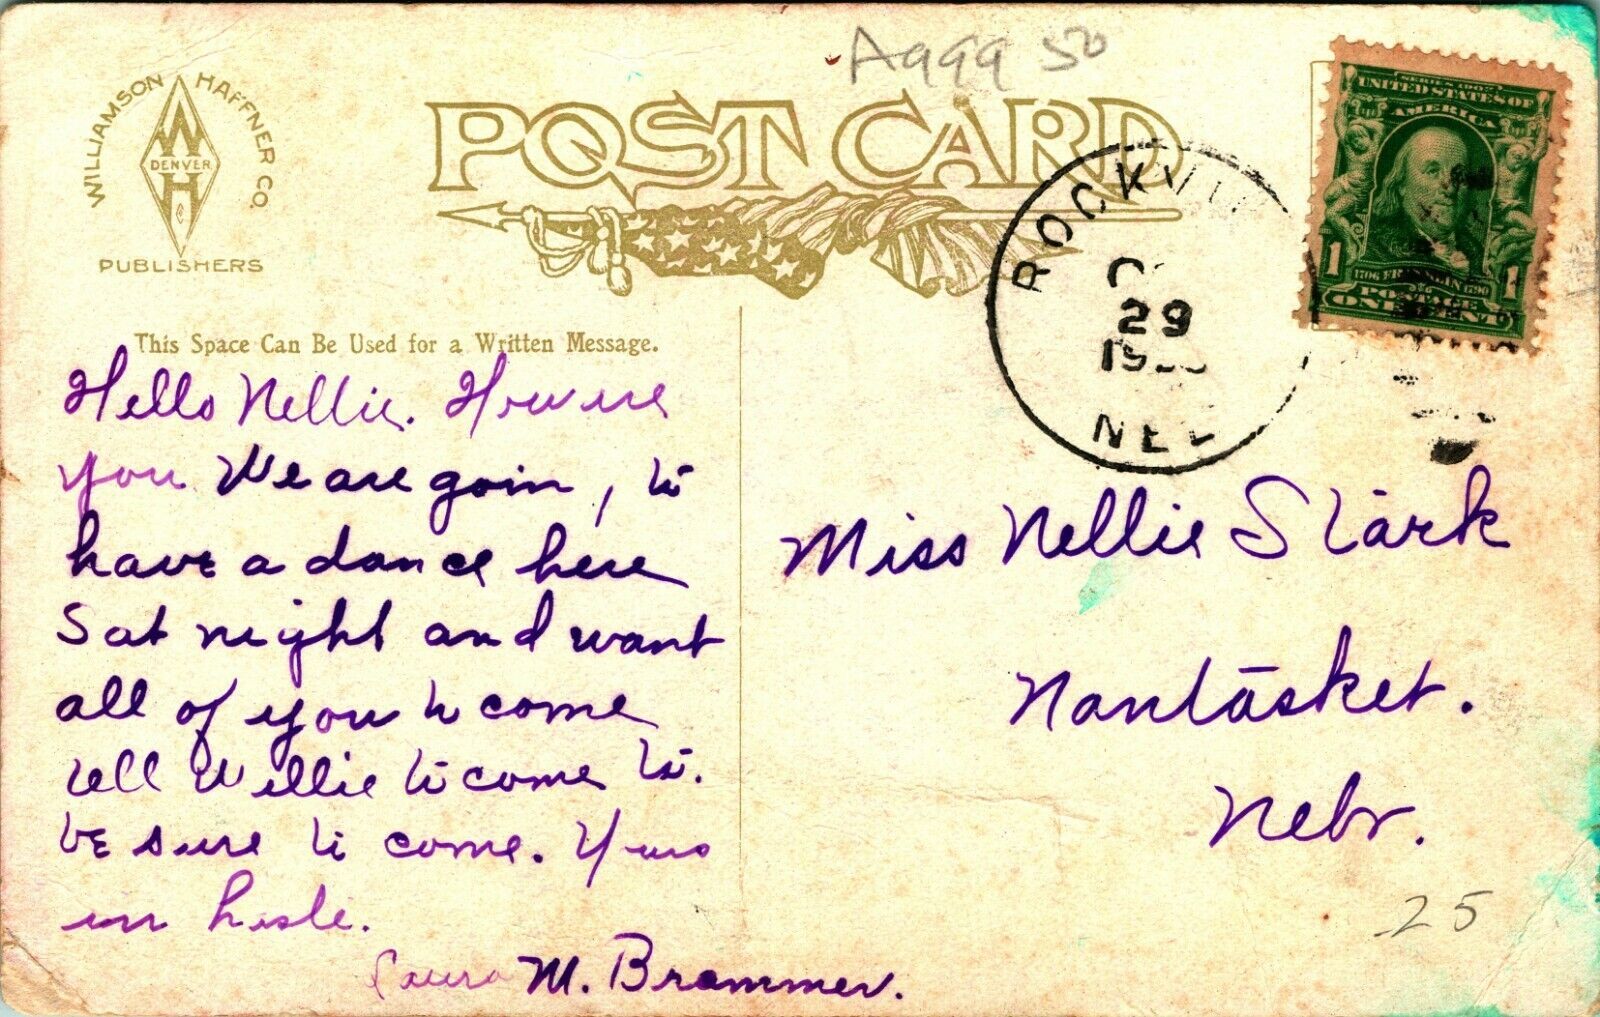 A999 50
WILLIAMSON HAFFNER CO.
W
DENVER
H
PUBLISHERS
POST CARD
SERIES 1902
UNITED STATES OF
AMERICA
1706 FRANKLIN 1790
1 1
POSTAGE
ONE CENT
ROCKVI
29
NEB
This Space Can Be Used for a Written Message.
Hello Nellie. How are
you We are goin, to
have a dance here
Sat night and want
all of you to come
tell Willie to come to.
be sure to come. Yours
in haste.
Laura M. Brammer.
Miss Nellie Stark
Nantasket.
Nebr.
25